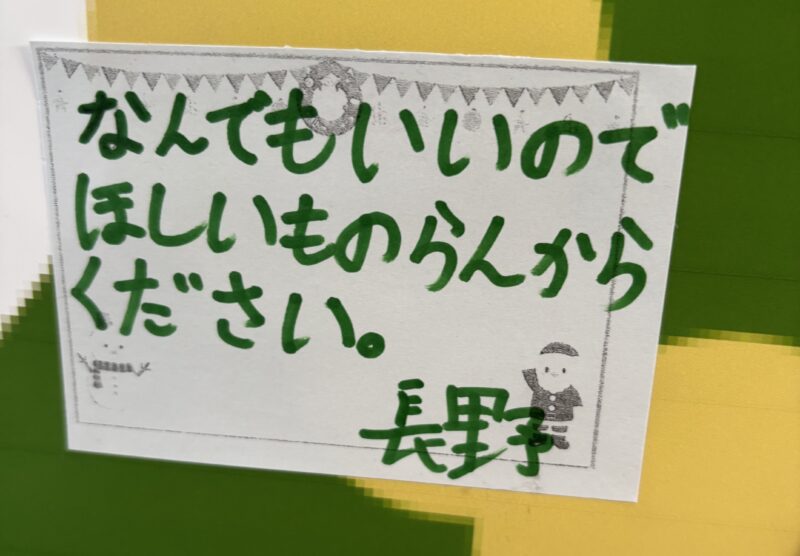 なんでもいいので
ほしいものらんから
ください。
長野